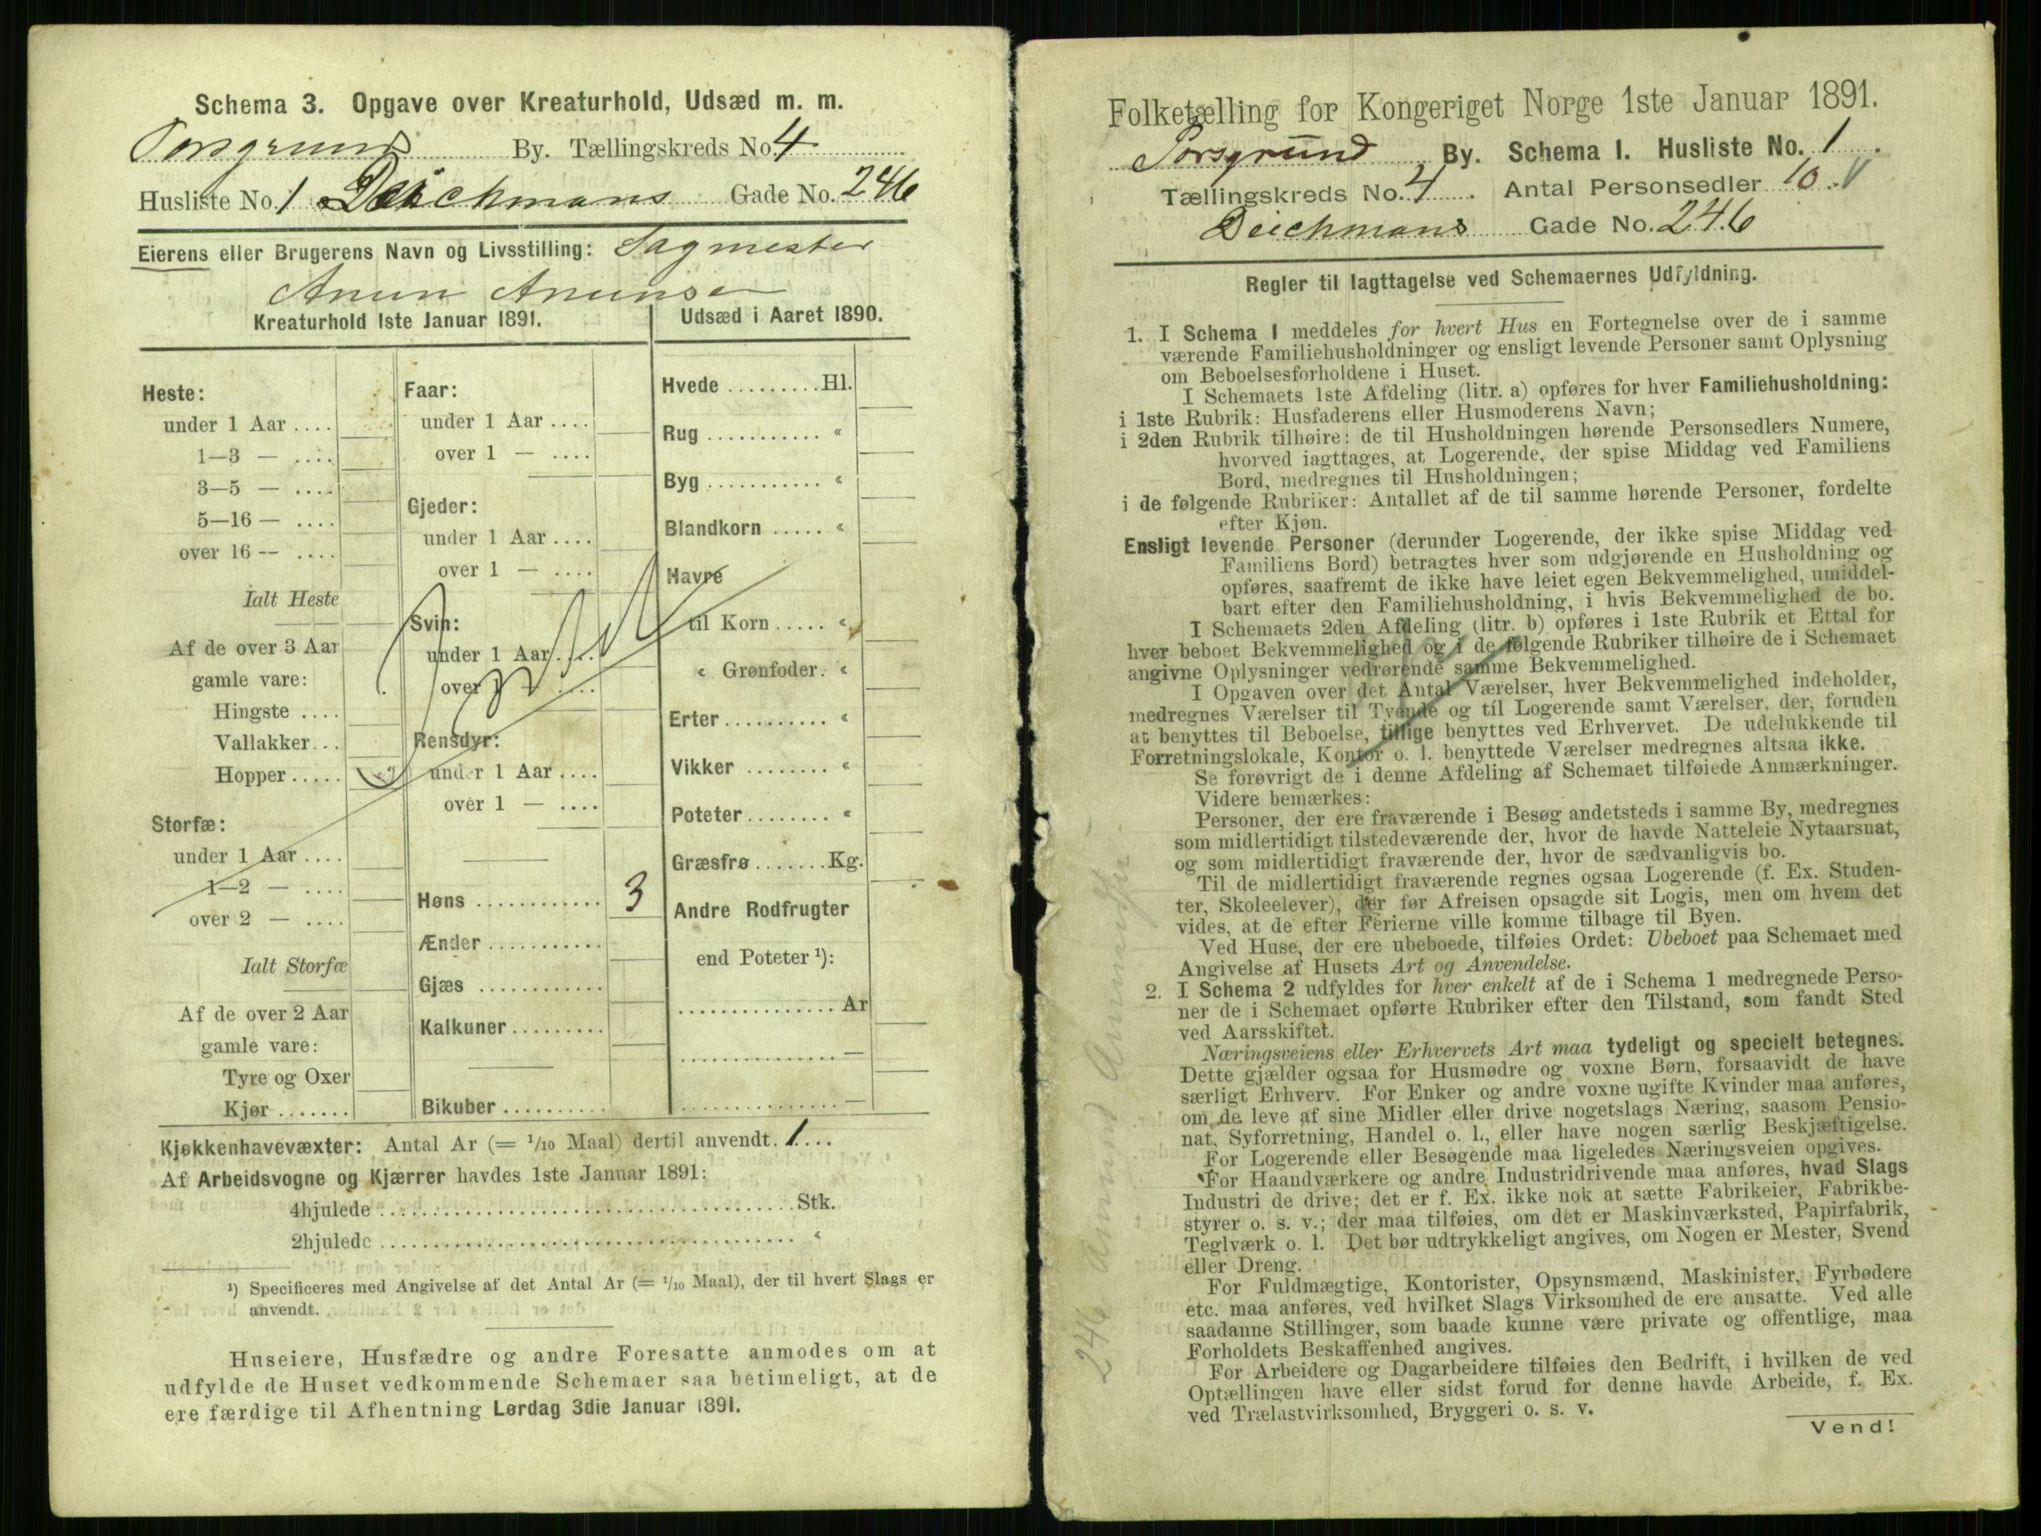 Schema 3. Opgave over Kreaturhold, Udsæd m. m.
Porsgrund By. Tællingskreds No. 4
Husliste No. 1 Deichmans Gade No. 246
Eierens eller Brugerens Navn og Livsstilling: Sagmester
Anun Anunsen
Kreaturhold 1ste Januar 1891.
Heste:
under 1 Aar ....
1—3 — ....
3—5 — ....
5—16 — ....
over 16 — ....
Ialt Heste
Af de over 3 Aar
gamle vare:
Hingste ....
Vallakker...
Hopper .....
Storfæ:
under 1 Aar ....
1—2 — ....
over 2 — ....
Ialt Storfæ
Af de over 2 Aar
gamle vare:
Tyre og Oxer
Kjør .......
Faar:
under 1 Aar ....
over 1 — ....
Gjeder:
under 1 Aar ....
over 1 — ....
Svin:
under 1 Aar ....
over 1 — ....
Rensdyr:
under 1 Aar ....
over 1 — ....
Høns ............ 3
Ænder ...........
Gjæs ............
Kalkuner.........
Bikuber ..........
Udsæd i Aaret 1890.
Hvede .........Hl.
Rug ........... «
Byg ........... «
Blandkorn ..... «
Havre
til Korn ..... «
« Grønfoder. «
Erter.......... «
Vikker ........ «
Poteter........ «
Græsfrø .......Kg.
Andre Rodfrugter
end Poteter ¹):
...............Ar
............... —
............... —
Kjøkkenhavevæxter: Antal Ar (= 1/10 Maal) dertil anvendt. 1...
Af Arbeidsvogne og Kjærrer havdes 1ste Januar 1891:
4hjulede ........................................Stk.
2hjulede ........................................ «
¹) Specificeres med Angivelse af det Antal Ar (= 1/10 Maal), der til hvert Slags er
anvendt.
Huseiere, Husfædre og andre Foresatte anmodes om at
udfylde de Huset vedkommende Schemaer saa betimeligt, at de
ere færdige til Afhentning Lørdag 3die Januar 1891.
Folketælling for Kongeriget Norge 1ste Januar 1891.
Porsgrund By. Schema I. Husliste No. 1.
Tællingskreds No. 4. Antal Personsedler 10. V
Deichmans Gade No. 246
Regler til Iagttagelse ved Schemaernes Udfyldning.
1. I Schema I meddeles for hvert Hus en Fortegnelse over de i samme
værende Familiehusholdninger og ensligt levende Personer samt Oplysning
om Beboelsesforholdene i Huset.
I Schemaets 1ste Afdeling (litr. a) opføres for hver Familiehusholdning:
i 1ste Rubrik: Husfaderens eller Husmoderens Navn;
i 2den Rubrik tilhøire: de til Husholdningen hørende Personsedlers Numere,
hvorved iagttages, at Logerende, der spise Middag ved Familiens
Bord, medregnes til Husholdningen;
i de følgende Rubriker: Antallet af de til samme hørende Personer, fordelte
efter Kjøn.
Ensligt levende Personer (derunder Logerende, der ikke spise Middag ved
Familiens Bord) betragtes hver som udgjørende en Husholdning og
opføres, saafremt de ikke have leiet egen Bekvemmelighed, umiddel-
bart efter den Familiehusholdning, i hvis Bekvemmelighed de bo.
I Schemaets 2den Afdeling (litr. b) opføres i 1ste Rubrik et Ettal for
hver beboet Bekvemmelighed og i de følgende Rubriker tilhøire de i Schemaet
angivne Oplysninger vedrørende samme Bekvemmelighed.
I Opgaven over det Antal Værelser, hver Bekvemmelighed indeholder,
medregnes Værelser til Tyende og til Logerende samt Værelser, der, foruden
at benyttes til Beboelse, tillige benyttes ved Erhvervet. De udelukkende til
Forretningslokale, Kontor o. l. benyttede Værelser medregnes altsaa ikke.
Se forøvrigt de i denne Afdeling af Schemaet tilføiede Anmærkninger.
Videre bemærkes:
Personer, der ere fraværende i Besøg andetsteds i samme By, medregnes
som midlertidigt tilstedeværende der, hvor de havde Natteleie Nytaarsnat,
og som midlertidigt fraværende der, hvor de sædvanligvis bo.
Til de midlertidigt fraværende regnes ogsaa Logerende (f. Ex. Studen-
ter, Skoleelever), der før Afreisen opsagde sit Logis, men om hvem det
vides, at de efter Ferierne ville komme tilbage til Byen.
Ved Huse, der ere ubeboede, tilføies Ordet: Ubeboet paa Schemaet med
Angivelse af Husets Art og Anvendelse.
2. I Schema 2 udfyldes for hver enkelt af de i Schema 1 medregnede Perso-
ner de i Schemaet opførte Rubriker efter den Tilstand, som fandt Sted
ved Aarsskiftet.
Næringsveiens eller Erhvervets Art maa tydeligt og specielt betegnes.
Dette gjælder ogsaa for Husmødre og voxne Børn, forsaavidt de have
særligt Erhverv. For Enker og andre voxne ugifte Kvinder maa anføres,
om de leve af sine Midler eller drive nogetslags Næring, saasom Pensio-
nat, Syforretning, Handel o. l., eller have nogen særlig Beskjæftigelse.
For Logerende eller Besøgende maa ligeledes Næringsveien opgives.
For Haandværkere og andre Industridrivende maa anføres, hvad Slags
Industri de drive; det er f. Ex. ikke nok at sætte Fabrikeier, Fabrikbe-
styrer o. s. v.; der maa tilføies, om det er Maskinværksted, Papirfabrik,
Teglværk o. l. Det bør udtrykkeligt angives, om Nogen er Mester, Svend
eller Dreng.
For Fuldmægtige, Kontorister, Opsynsmænd, Maskinister, Fyrbødere
etc. maa anføres, ved hvilket Slags Virksomhed de ere ansatte. Ved alle
saadanne Stillinger, som baade kunne være private og offentlige, maa
Forholdets Beskaffenhed angives.
For Arbeidere og Dagarbeidere tilføies den Bedrift, i hvilken de ved
Optællingen have eller sidst forud for denne havde Arbeide, f. Ex.
ved Trælastvirksomhed, Bryggeri o. s. v.
Vend!
246